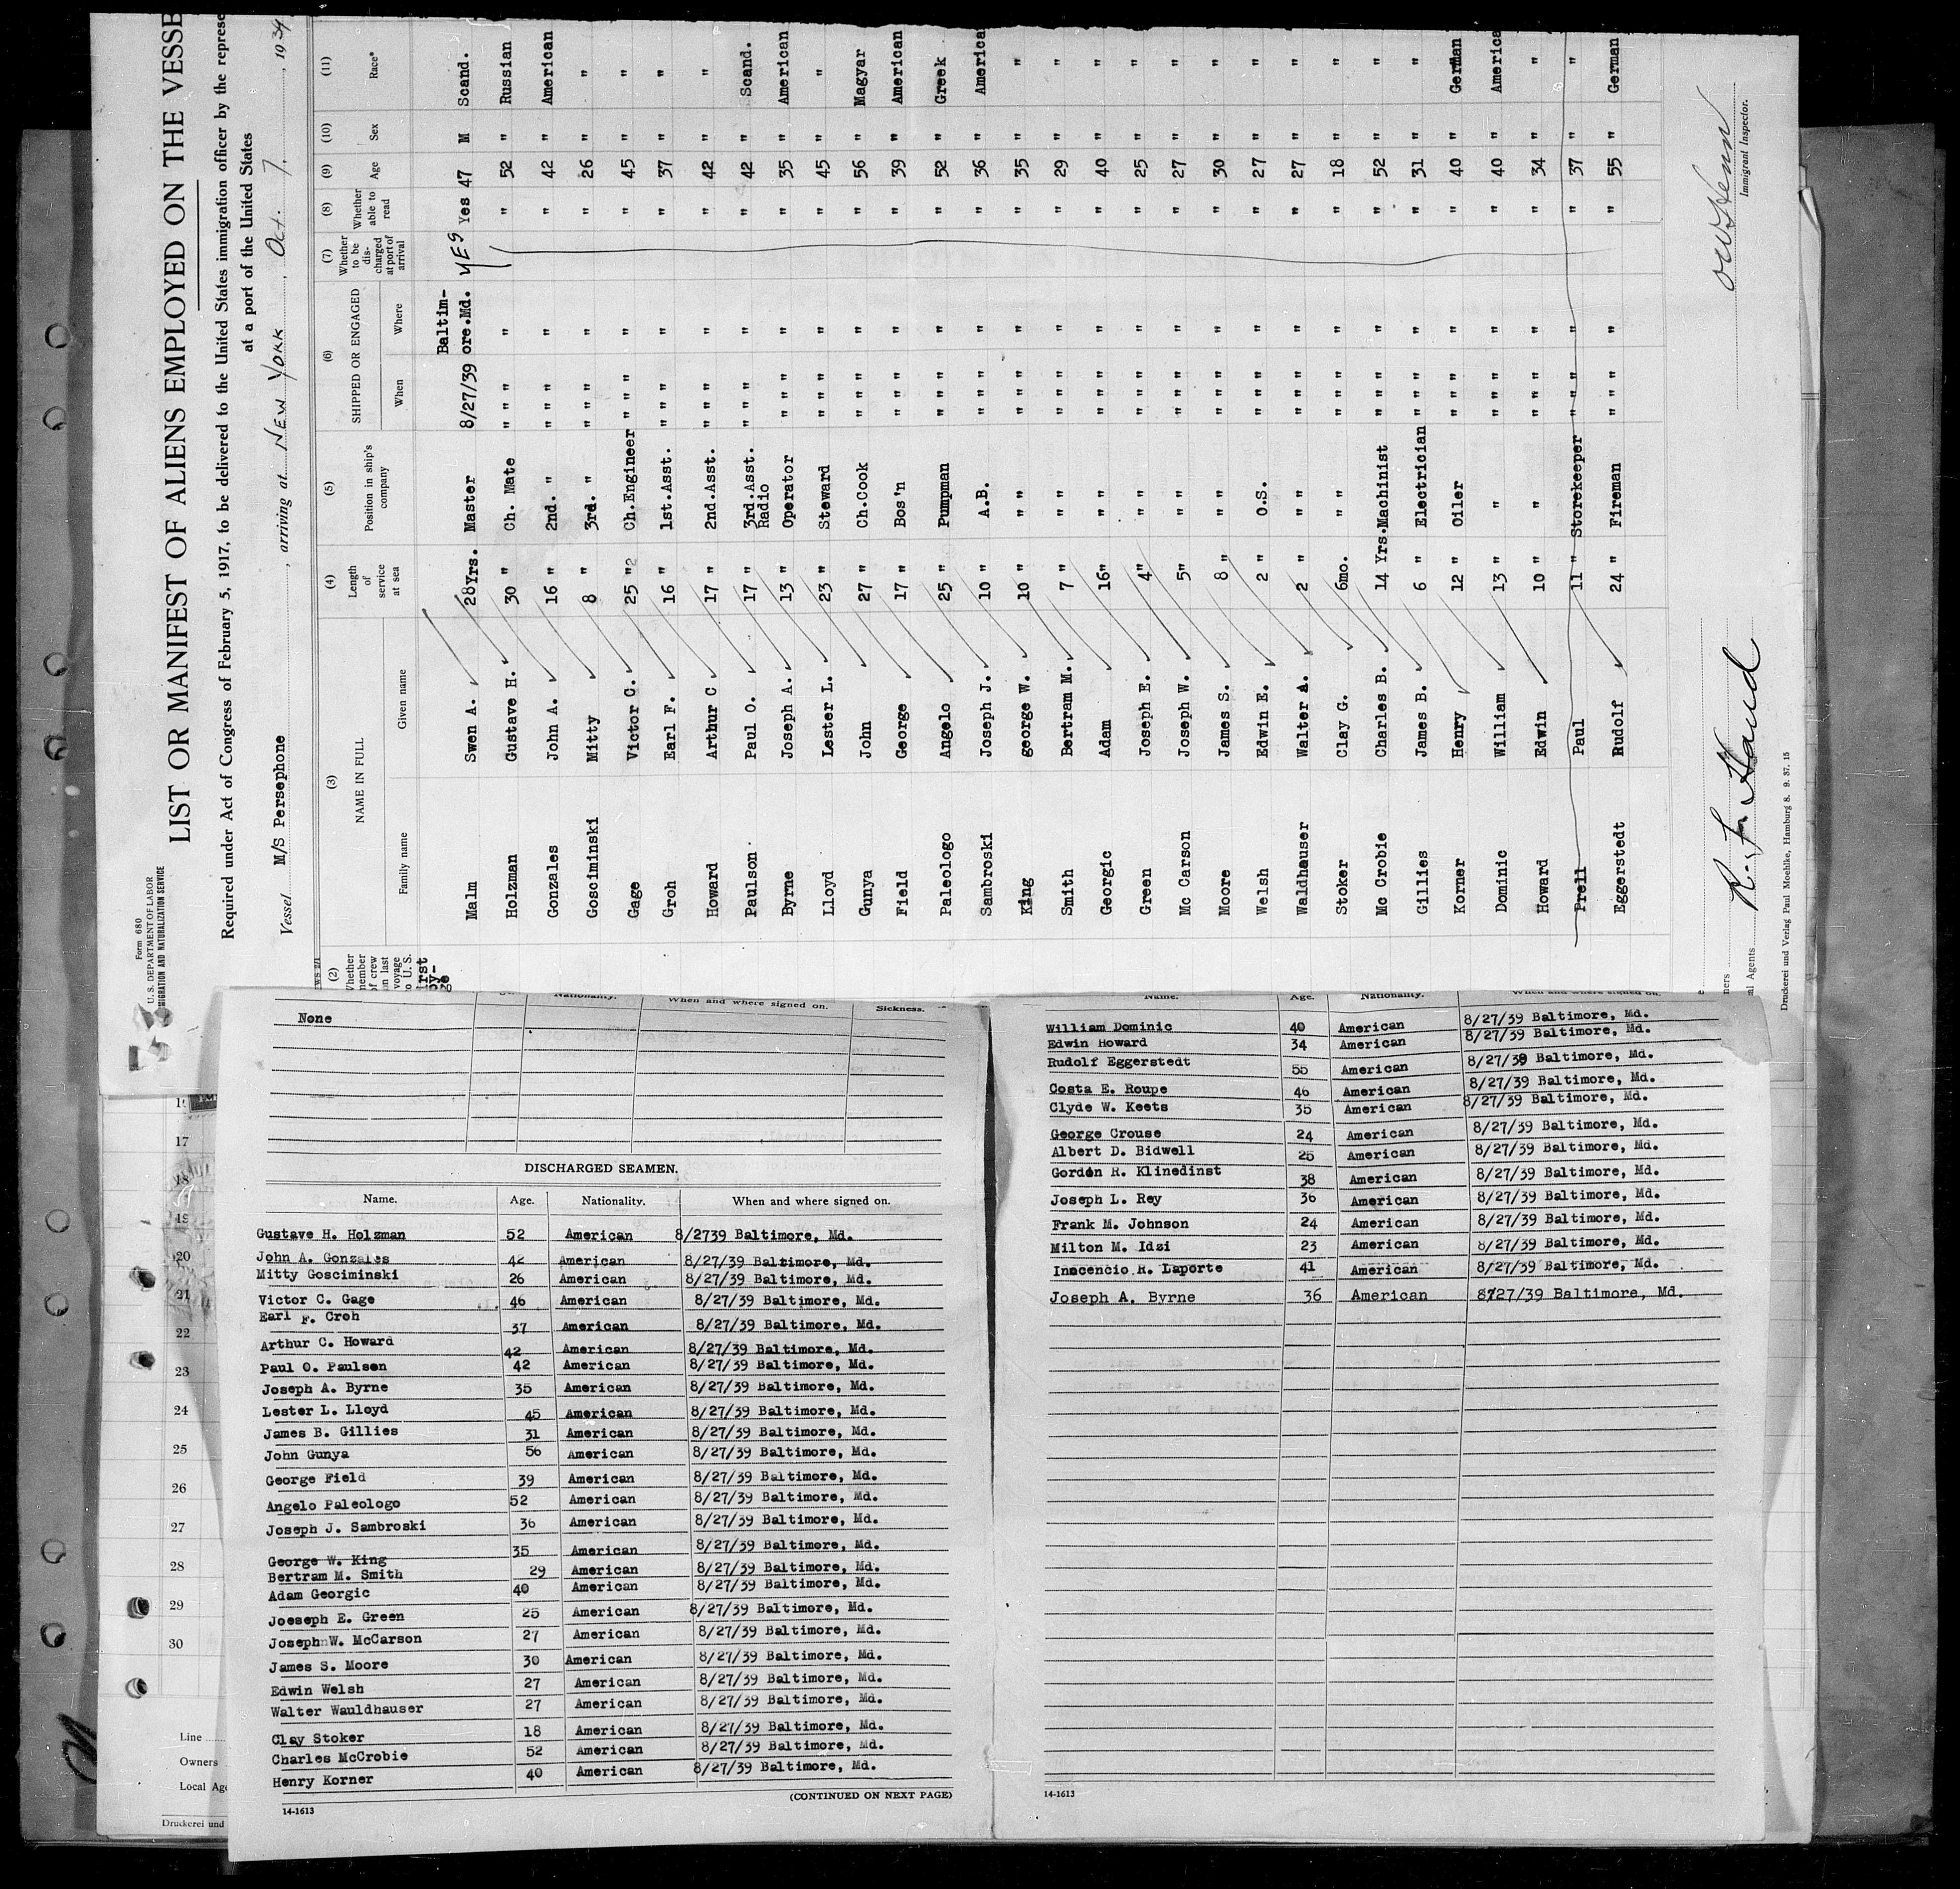 Form 680
U. S. DEPARTMENT OF LABOR
IMMIGRATION AND NATURALIZATION SERVICE
LIST OR MANIFEST OF ALIENS EMPLOYED ON THE VESSE
Required under Act of Congress of February 5, 1917, to be delivered to the United States immigration officer by the represe
at a port of the United States
Vessel M/S Persephone , arriving at New York , Oct. 7. , 1939
(2) (3) (4) (5) (6) (7) (8) (9) (10) (11)
NAME IN FULL
Family name Given name
Length of service at sea
Position in ship's company
SHIPPED OR ENGAGED
When Where
Whether to be discharged at port of arrival
Whether able to read
Age Sex Race*
Baltim-
Malm Swen A. 28Yrs. Master 8/27/39 ore.Md. YES Yes 47 M Scand.
Holzman Gustave H. 30 " Ch. Mate " " " " " 52 " Russian
Gonzales John A. 16 " 2nd. " " " " " " 42 " American
Gosciminski Mitty 8 " 3rd. " " " " " " 26 " "
Gage Victor C. 25 "2 Ch.Engineer " " " " " 45 " "
Groh Earl F. 16 " 1st.Asst. " " " " " 37 " "
Howard Arthur C 17 " 2nd.Asst. " " " " " 42 " "
Paulson Paul O. 17 " 3rd.Asst. " " " " " 42 " Scand.
Radio
Byrne Joseph A. 13 " Operator " " " " " 35 " American
Lloyd Lester L. 23 " Steward " " " " " 45 " "
Gunya John 27 " Ch.Cook " " " " " 56 " Magyar
Field George 17 " Bos'n " " " " " 39 " American
Paleologo Angelo 25 " Pumpman " " " " " 52 " Greek
Sambroski Joseph J. 10 " A.B. " " " " " 36 " America
King george W. 10 " " " " " " " " 35 " "
Smith Bertram M. 7 " " " " " " " " 29 " "
Georgic Adam 16" " " " " " " " 40 " "
Green Joseph E. 4" " " " " " " " 25 " "
Mc Carson Joseph W. 5" " " " " " " " 27 " "
Moore James S. 8 " " " " " " " " 30 " "
Welsh Edwin E. 2 " O.S. " " " " " 27 " "
Waldhauser Walter A. 2 " " " " " " " " 27 " "
Stoker Clay G. 6mo. " " " " " " " 18 " "
Mc Crobie Charles B. 14 Yrs.Machinist " " " " " 52 " "
Gillies James B. 6 " Electrician " " " " " 31 " "
Korner Henry 12 " Oiler " " " " " 40 " German
Dominic William 13 " " " " " " " 40 " America
Howard Edwin 10 " " " " " " " 34 " "
Prell Paul 11 " Storekeeper " " " " " 37 " "
Eggerstedt Rudolf 24 " Fireman " " " " " 55 " German
Immigrant Inspector.
R. L. Hand
l Agents
Druckerei und Verlag Paul Moehlke, Hamburg 8. 9. 37. 15
Nationality. When and where signed on. Sickness.
None
DISCHARGED SEAMEN.
Name. Age. Nationality. When and where signed on.
Gustave H. Holzman 52 American 8/2739 Baltimore, Md.
John A. Gonzales 42 American 8/27/39 Baltimore, Md.
Mitty Gosciminski 26 American 8/27/39 Baltimore, Md.
Victor C. Gage 46 American 8/27/39 Baltimore, Md.
Earl F. Croh 37 American 8/27/39 Baltimore, Md.
Arthur C. Howard 42 American 8/27/39 Baltimore, Md.
Paul O. Paulsen 42 American 8/27/39 Baltimore, Md.
Joseph A. Byrne 35 American 8/27/39 Baltimore, Md.
Lester L. Lloyd 45 American 8/27/39 Baltimore, Md.
James B. Gillies 31 American 8/27/39 Baltimore, Md.
John Gunya 56 American 8/27/39 Baltimore, Md.
George Field 39 American 8/27/39 Baltimore, Md.
Angelo Paleologo 52 American 8/27/39 Baltimore, Md.
Joseph J. Sambroski 36 American 8/27/39 Baltimore, Md.
George W. King 35 American 8/27/39 Baltimore, Md.
Bertram M. Smith 29 American 8/27/39 Baltimore, Md.
Adam Georgic 40 American 8/27/39 Baltimore, Md.
Joeseph E. Green 25 American 8/27/39 Baltimore, Md.
Joseph W. McCarson 27 American 8/27/39 Baltimore, Md.
James S. Moore 30 American 8/27/39 Baltimore, Md.
Edwin Welsh 27 American 8/27/39 Baltimore, Md.
Walter Wauldhauser 27 American 8/27/39 Baltimore, Md.
Clay Stoker 18 American 8/27/39 Baltimore, Md.
Charles McCrobie 52 American 8/27/39 Baltimore, Md.
Henry Korner 40 American 8/27/39 Baltimore, Md.
(CONTINUED ON NEXT PAGE)
14-1613
Name. Age. Nationality. When and where signed on.
William Dominic 40 American 8/27/39 Baltimore, Md.
Edwin Howard 34 American 8/27/39 Baltimore, Md.
Rudolf Eggerstedt 55 American 8/27/39 Baltimore, Md.
Costa E. Roupe 46 American 8/27/39 Baltimore, Md.
Clyde W. Keets 35 American 8/27/39 Baltimore, Md.
George Crouse 24 American 8/27/39 Baltimore, Md.
Albert D. Bidwell 25 American 8/27/39 Baltimore, Md.
Gordon R. Klinedinst 38 American 8/27/39 Baltimore, Md.
Joseph L. Rey 36 American 8/27/39 Baltimore, Md.
Frank M. Johnson 24 American 8/27/39 Baltimore, Md.
Milton M. Idzi 23 American 8/27/39 Baltimore, Md.
Inocencio R. Laporte 41 American 8/27/39 Baltimore, Md.
Joseph A. Byrne 36 American 8/27/39 Baltimore, Md.
14-1613
17
18
19
20
21
22
23
24
25
26
27
28
29
30
Line
Owners
Local Age
Druckerei und